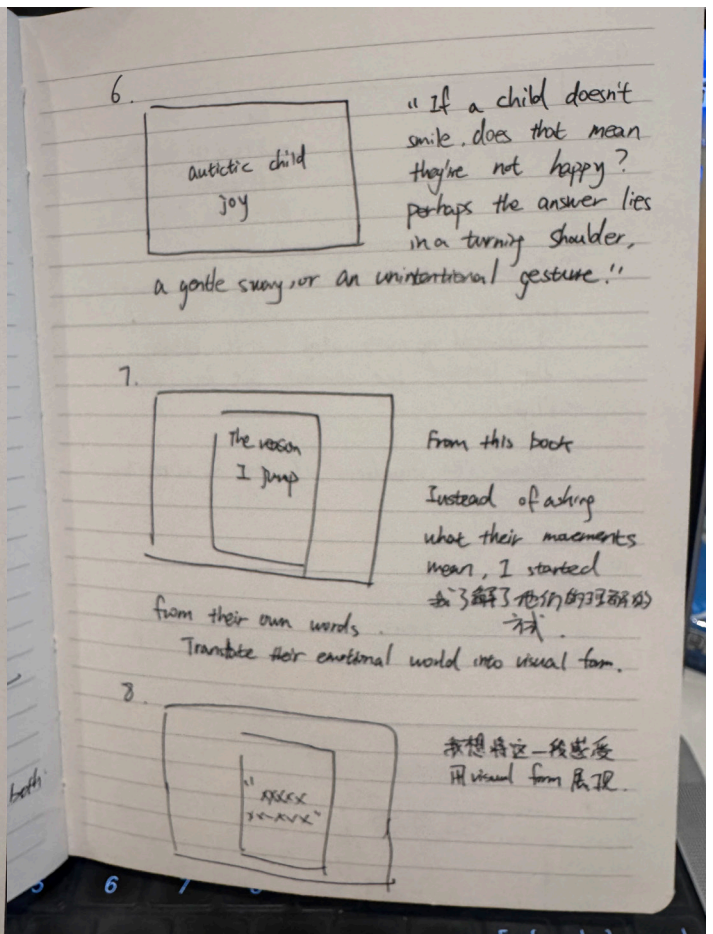 6.
autictic child
joy
"If a child doesn't
smile, does that mean
they're not happy?
perhaps the answer lies
in a turning shoulder,
a gentle sway, or an unintentional gesture."
7.
The reason
I jump
From this book
Instead of asking
what their movements
mean, I started
我了解了他们的理解的
方式.
from their own words.
Translate their emotional world into visual form.
8.
"xxxxx
xx-xvx"
我想将这一段感受
用visual form 展现.
both
5 6 7